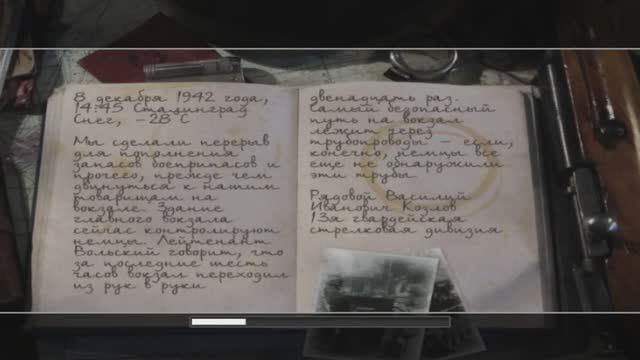 8 декабря 1942 года,
14:45 Сталинград
Снег, -28 С
Мы сделали перерыв
для пополнения
запасов боеприпасов и
прочего, прежде чем
двинуться к нашим
товарищам на
вокзале. Здание
главного вокзала
сейчас контролируют
немцы. Лейтенант
Вольский говорит, что
за последние шесть
часов вокзал переходил
из рук в руки
двенадцать раз.
Самый безопасный
путь на вокзал
лежит через
трубопроводы - если,
конечно, немцы все
еще не обнаружили
эти трубы.
Рядовой Василий
Иванович Козлов
13я гвардейская
стрелковая дивизия